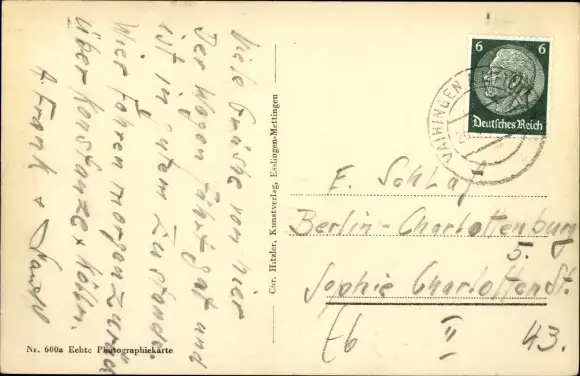 Viele Grüsse von hier
Der Wagen fährt gut und
ist in gutem Zustande.
Wir fahren morgen zurück
über Konstanz + Köln.
A. Frank +
Chr. Hitzler, Kunstverlag, Esslingen-Mettingen
6 6
Deutsches Reich
VAIHINGEN
F. Schlaf
Berlin-Charlottenburg
5.
Sophie Charlottenst.
II 43.
Nr. 600a Echte Photographiekarte